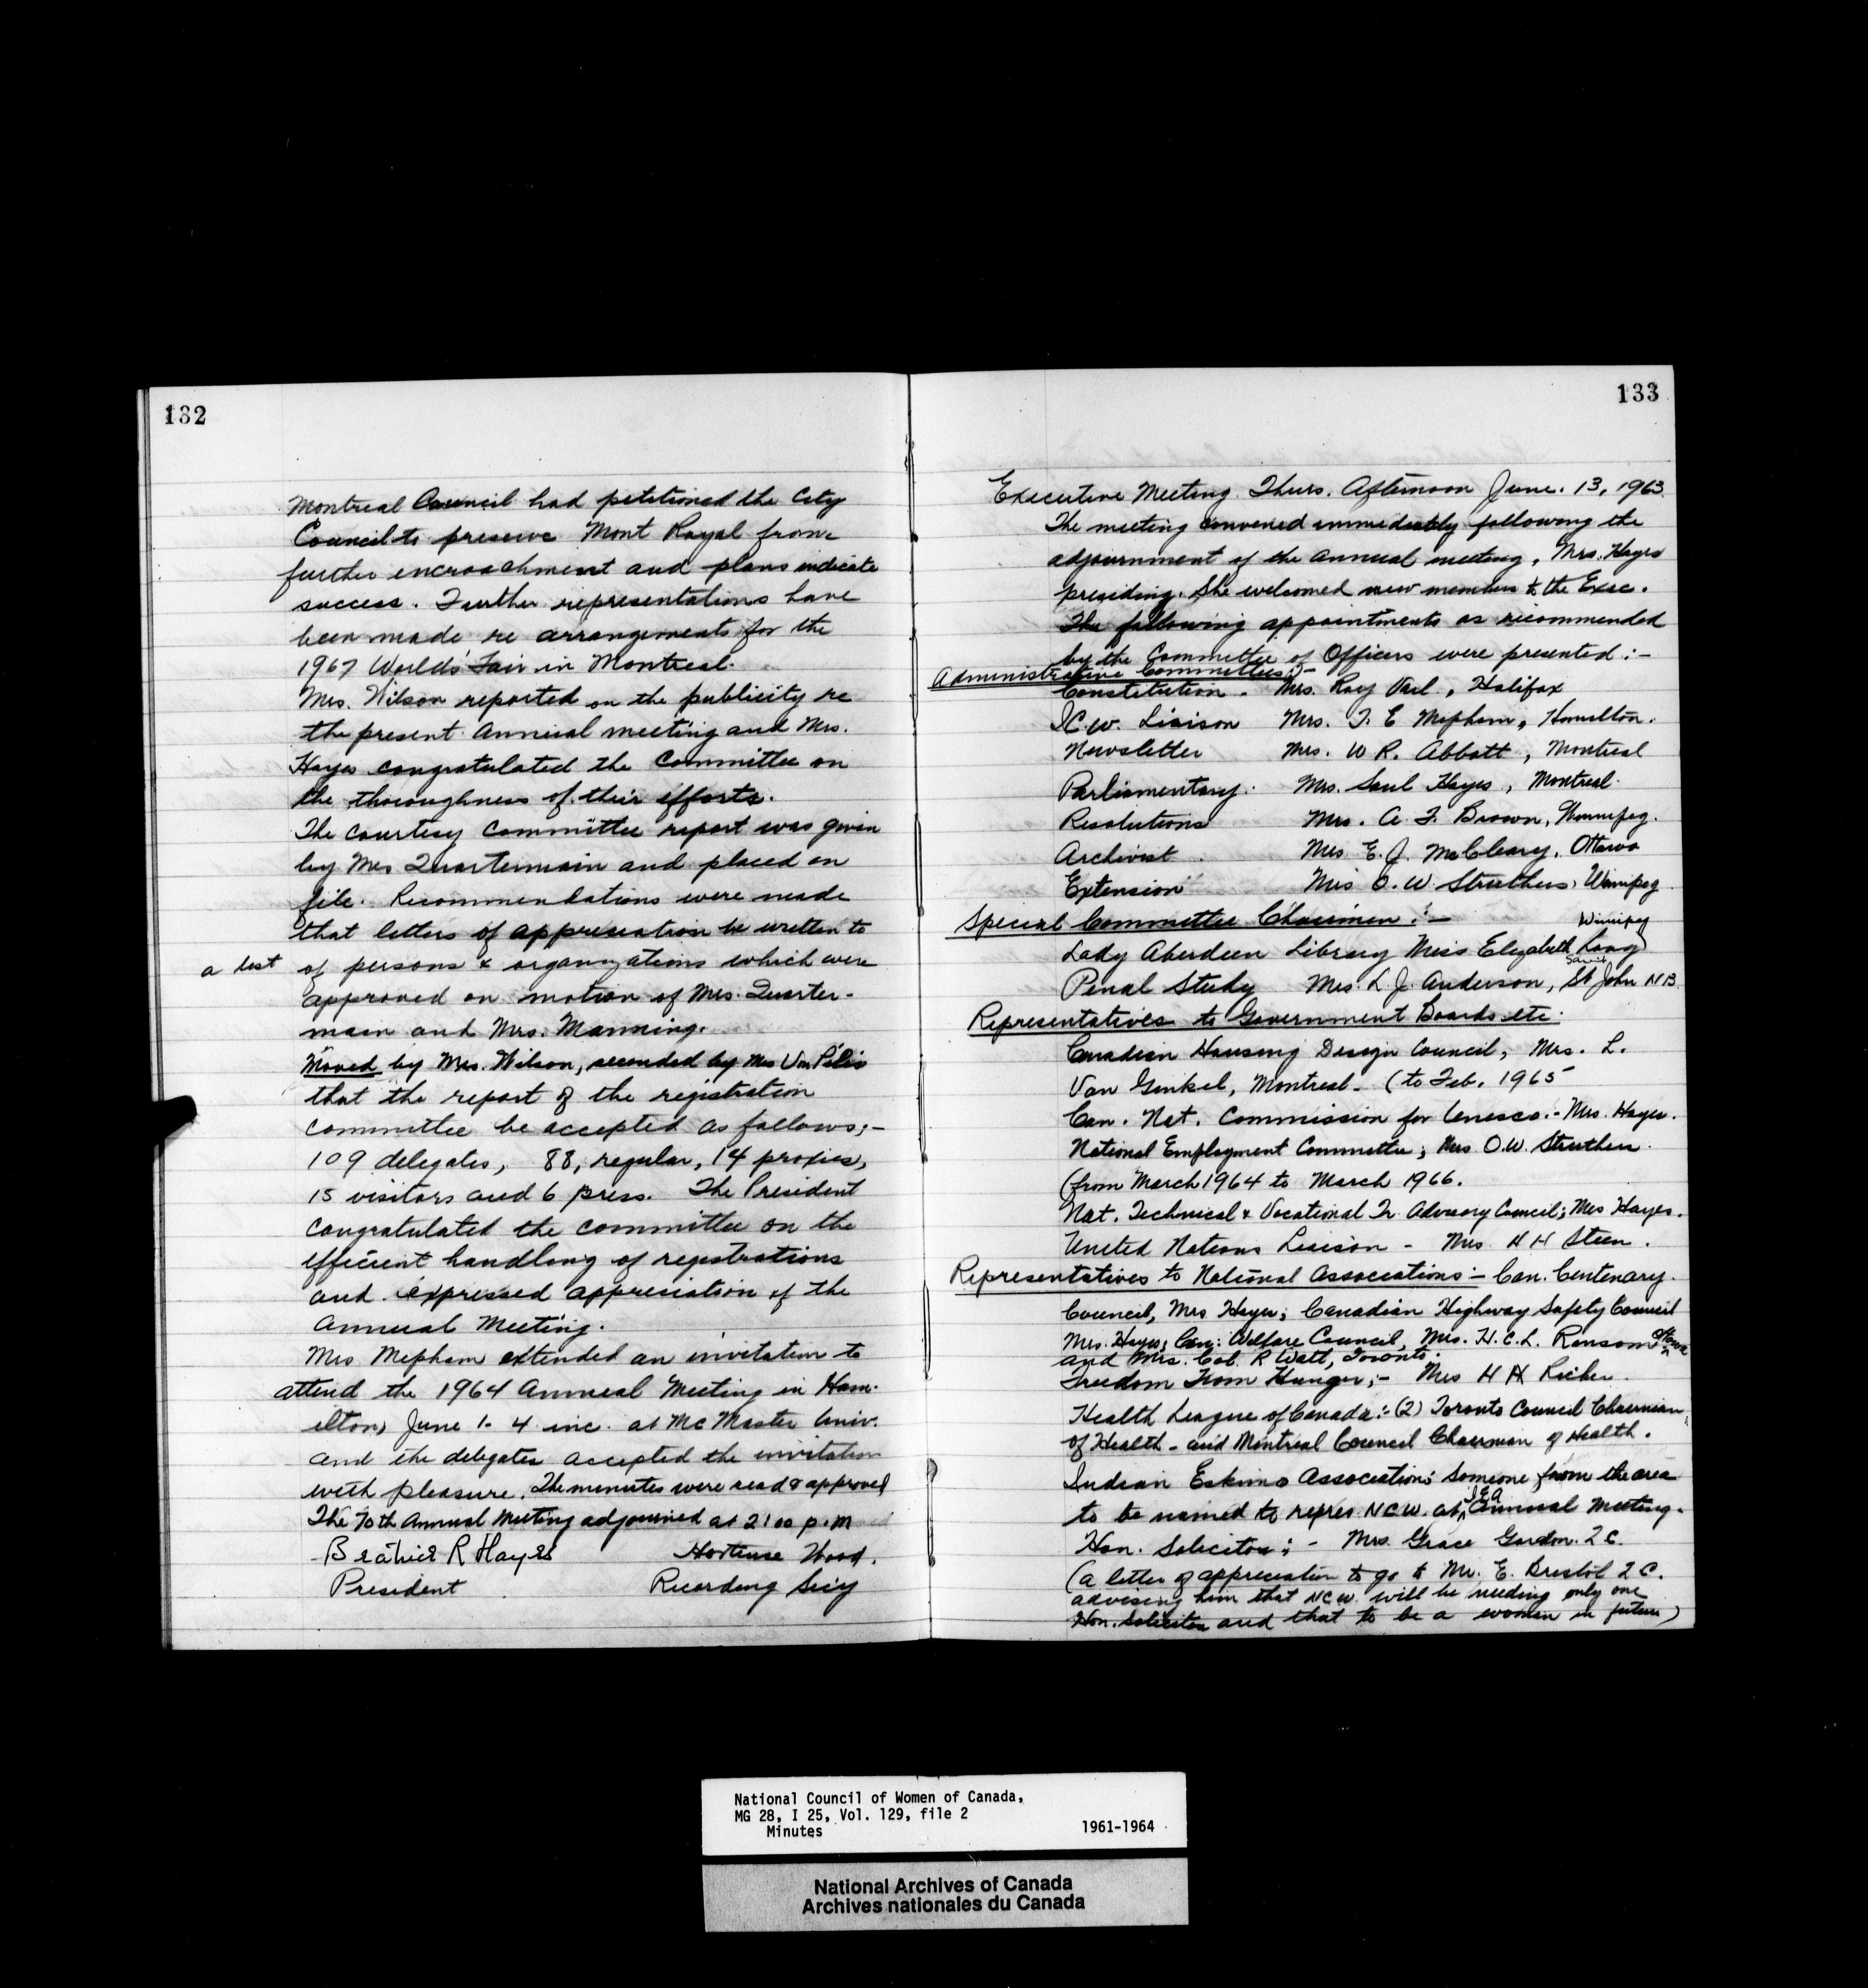 132
Montreal Council had petitioned the City
Council to preserve Mont Royal from
further encroachment and plans indicate
success. Further representations have
been made re arrangements for the
1967 Worlds' Fair in Montreal.
Mrs. Wilson reported on the publicity re
the present Annual meeting and Mrs.
Hayes congratulated the Committee on
the thoroughness of their efforts.
The courtesy committee report was given
by Mrs Quartermain and placed on
file. Recommendations were made
that letters of appreciation be written to
a list of persons & organizations which were
approved on motion of Mrs. Quarter-
main and Mrs. Manning.
Moved by Mrs. Wilson, seconded by Mrs Van
that the report of the registration
committee be accepted as follows;-
109 delegates, 88, regular, 14 proxies,
15 visitors and 6 press. The President
congratulated the committee on the
efficient handling of registrations
and expressed appreciation of the
Annual Meeting.
Mrs Mepham extended an invitation to
attend the 1964 Annual Meeting in Ham-
ilton, June 1-4 inc. at McMaster Univ.
and the delegates accepted the invitation
with pleasure. The minutes were read & approved
The 70th Annual Meeting adjourned at 2:00 p.m
Beatrice R Hayes Hortense Wood.
President Recording Sec'y
133
Executive Meeting Thurs. Afternoon June. 13, 1963
The meeting convened immediately following the
adjournment of the annual meeting, Mrs. Hayes
presiding. She welcomed new members to the Exec.
The following appointments as recommended
by the Committee of Officers were presented:-
Administrative Committees:-
Constitution - Mrs. Ray Vail, Halifax
ICW. Liaison Mrs. F. E Mepham, Hamilton.
Newsletter Mrs. W R. Abbott, Montreal
Parliamentary. Mrs. Saul Hayes, Montreal.
Resolutions Mrs. A. F. Brown, Winnipeg.
Archivist Mrs E. J. McCleary, Ottawa
Extension Mrs O. W Struthers, Winnipeg
Special Committee Chairmen:-
Winnipeg
Lady Aberdeen Library Miss Elizabeth Long
Saint
Penal Study Mrs. L. J. Anderson, St John NB
Representatives to Government Boards etc.
Canadian Housing Design Council, Mrs. L.
Van Ginkel, Montreal. (to Feb. 1965
Can. Nat. Commission for Unesco:- Mrs. Hayes.
National Employment Committee; Mrs O.W. Struthers.
(from March 1964 to March 1966.
Nat. Technical & Vocational Tr. Advisory Council; Mrs Hayes.
United Nations Liaison - Mrs H H Steen.
Representatives to National Associations:- Can. Centenary
Council, Mrs Hayes; Canadian Highway Safety Council
Mrs. Hayes; Can: Welfare Council, Mrs. H. C. L. Ransom Ottawa
and Mrs. Col. R Watt, Toronto.
Freedom From Hunger;- Mrs H H
Health League of Canada:- (2) Toronto Council Chairman
of Health - and Montreal Council Chairman of Health.
Indian Eskimo Association: Someone from the area
to be named to repres. NCW. at IEA Annual meeting.
Hon. Solicitor;- Mrs. Grace Gordon. Q C.
(a letter of appreciation to go to Mr. E. Bristol Q C.
advising him that NCW. will be needing only one
Hon. Solicitor and that to be a woman in future)
National Council of Women of Canada,
MG 28, I 25, Vol. 129, file 2
Minutes 1961-1964
National Archives of Canada
Archives nationales du Canada